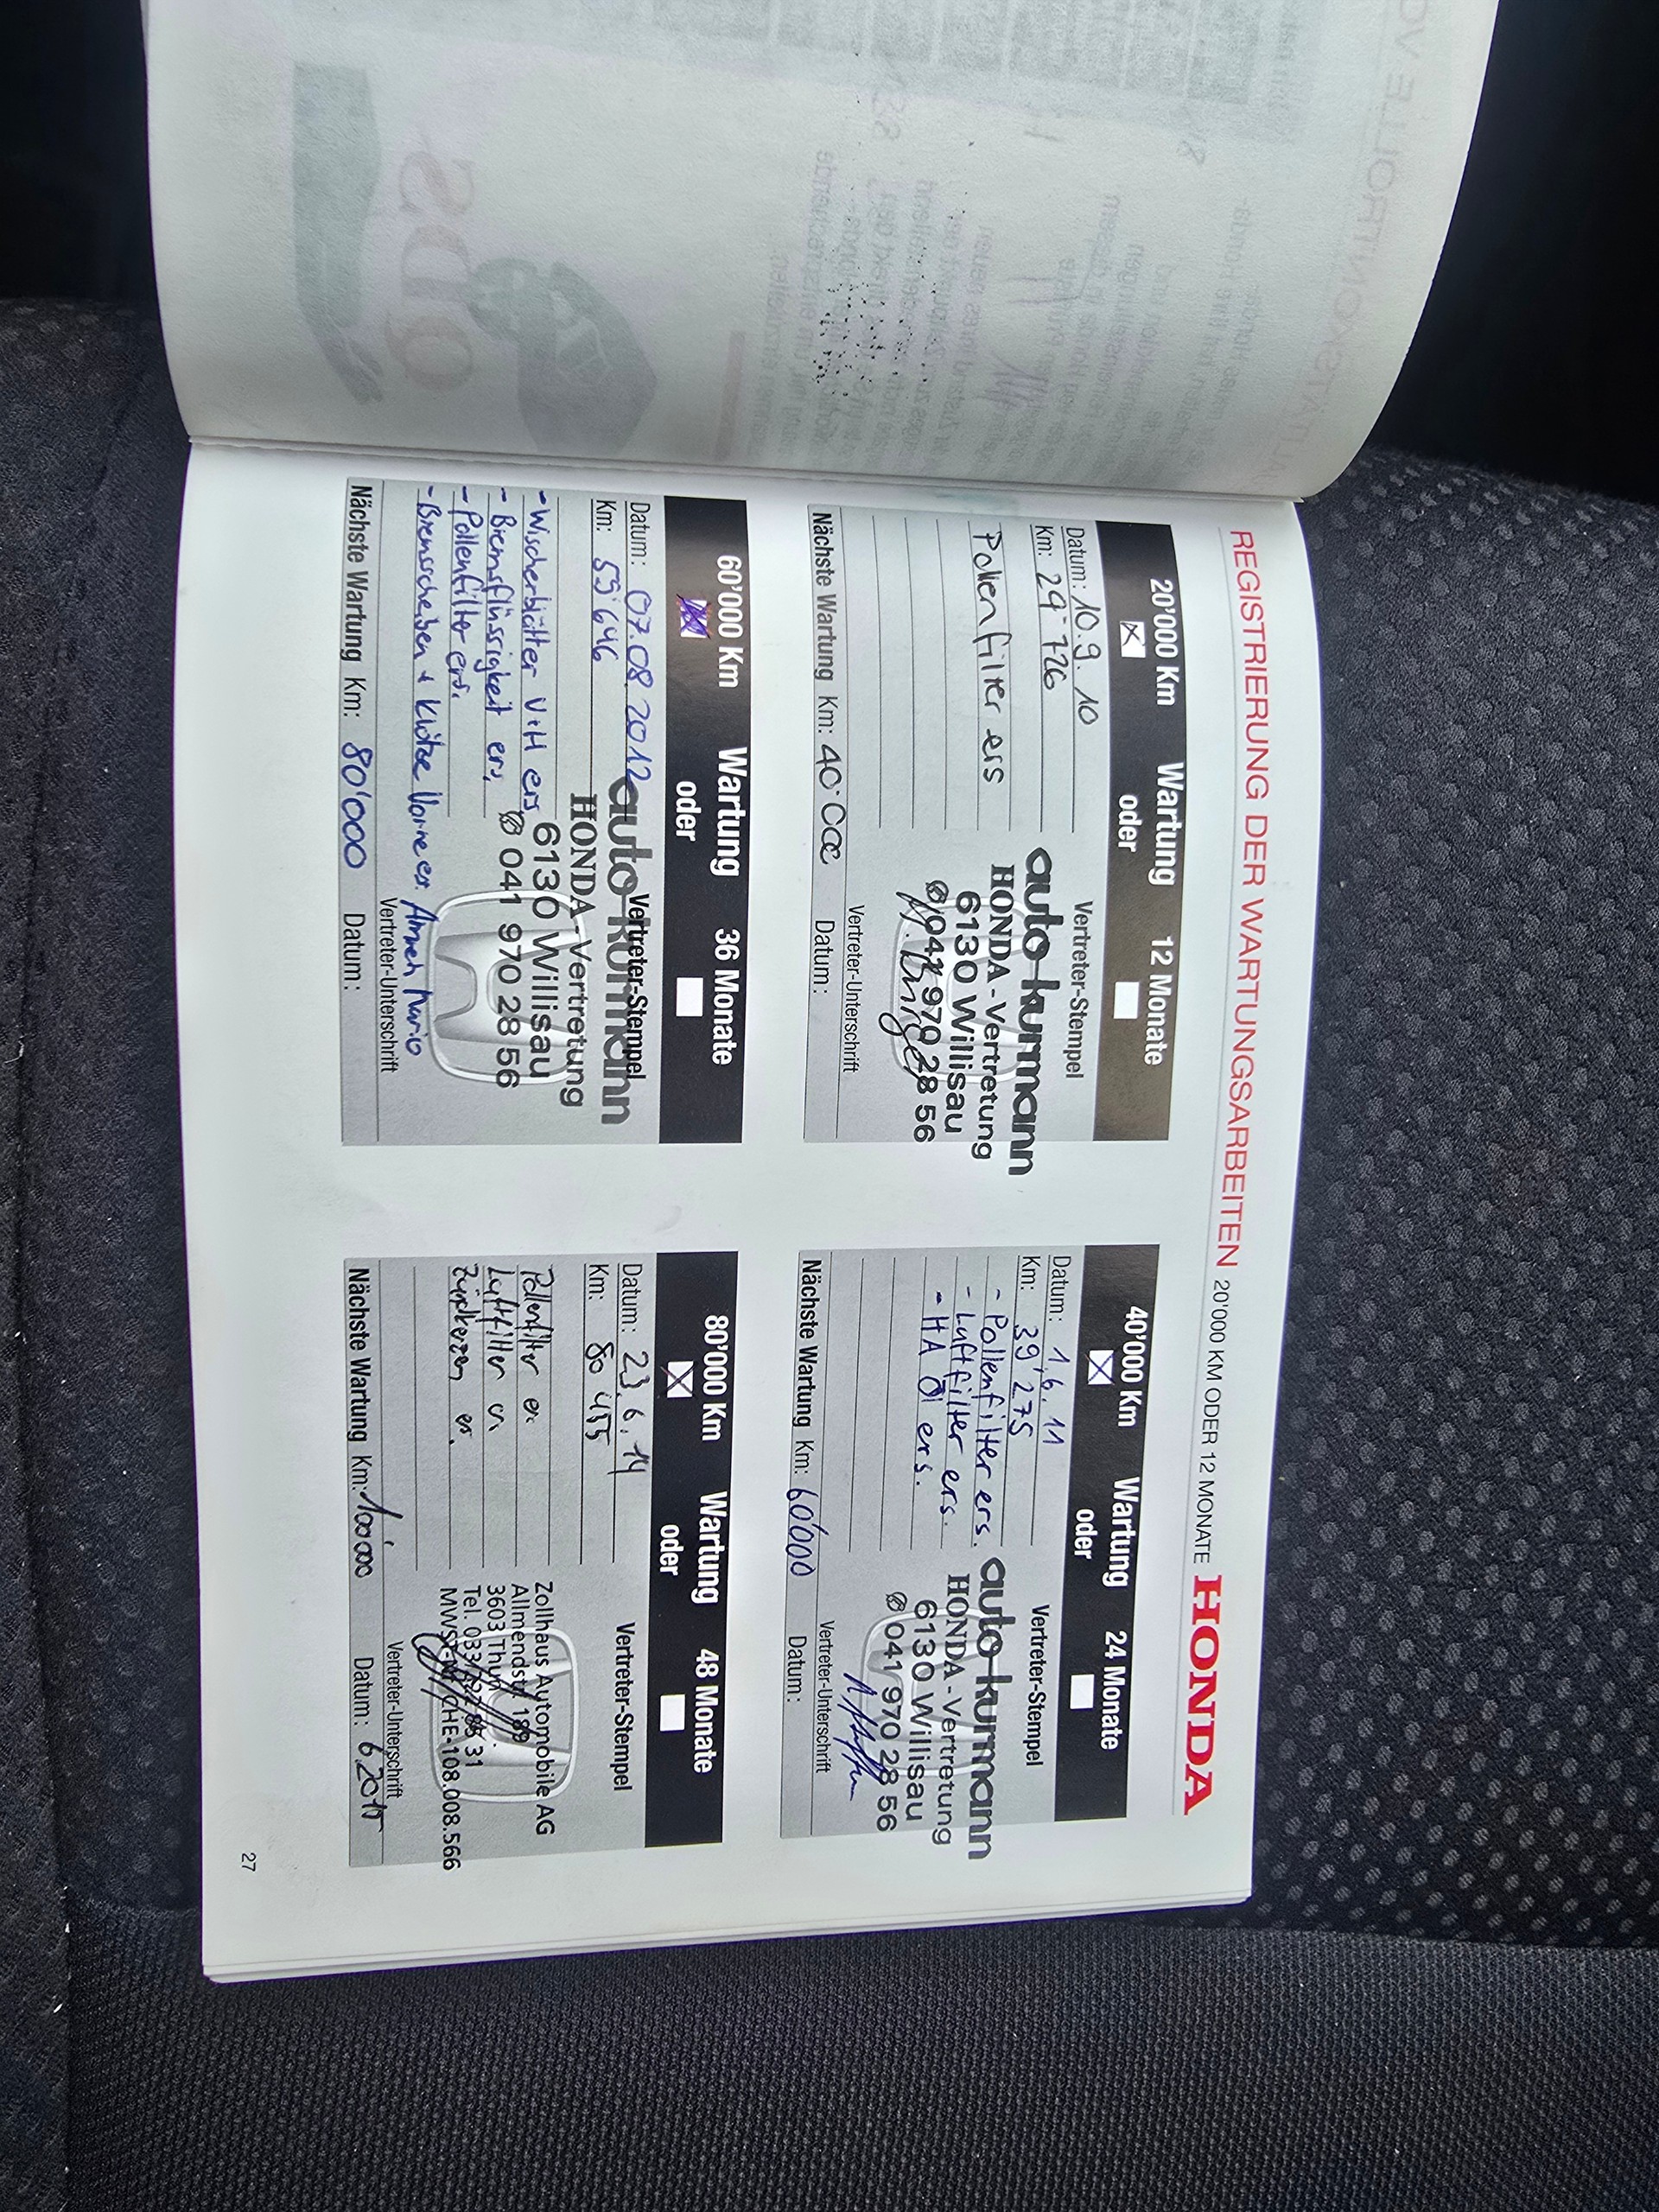 REGISTRIERUNG DER WARTUNGSARBEITEN 20'000 KM ODER 12 MONATE HONDA
20'000 Km Wartung 12 Monate
oder
Datum: 10.9.10
Km: 29'726
Pollenfilter ers
Vertreter-Stempel
auto-kurmann
HONDA-Vertretung
6130 Willisau
041 970 28 56
Vertreter-Unterschrift
Nächste Wartung Km: 40'000 Datum:
40'000 Km Wartung 24 Monate
oder
Datum: 1.6.11
Km: 39'275
- Pollenfilter ers.
- Luftfilter ers.
- HA Öl ers.
Vertreter-Stempel
auto-kurmann
HONDA-Vertretung
6130 Willisau
041 970 28 56
Vertreter-Unterschrift
Nächste Wartung Km: 60'000 Datum:
60'000 Km Wartung 36 Monate
oder
Datum: 07.08.2012
Km: 59'646
- Wischerblätter V+H ers
- Bremsflüssigkeit ers.
- Pollenfilter ers.
- Bremsscheiben + Klötze Vorne ers.
Vertreter-Stempel
auto-kurmann
HONDA-Vertretung
6130 Willisau
041 970 28 56
Vertreter-Unterschrift
Nächste Wartung Km: 80'000 Datum:
80'000 Km Wartung 48 Monate
oder
Datum: 23.6.14
Km: 80455
Pollenfilter er.
Luftfilter er.
Zündkerzen er.
Vertreter-Stempel
Zollhaus Automobile AG
Allmendstr. 189
3603 Thun
Tel. 033 31
MWST-Nr. CHE-108.008.566
Vertreter-Unterschrift
Nächste Wartung Km: 100'000 Datum: 6.2015
27